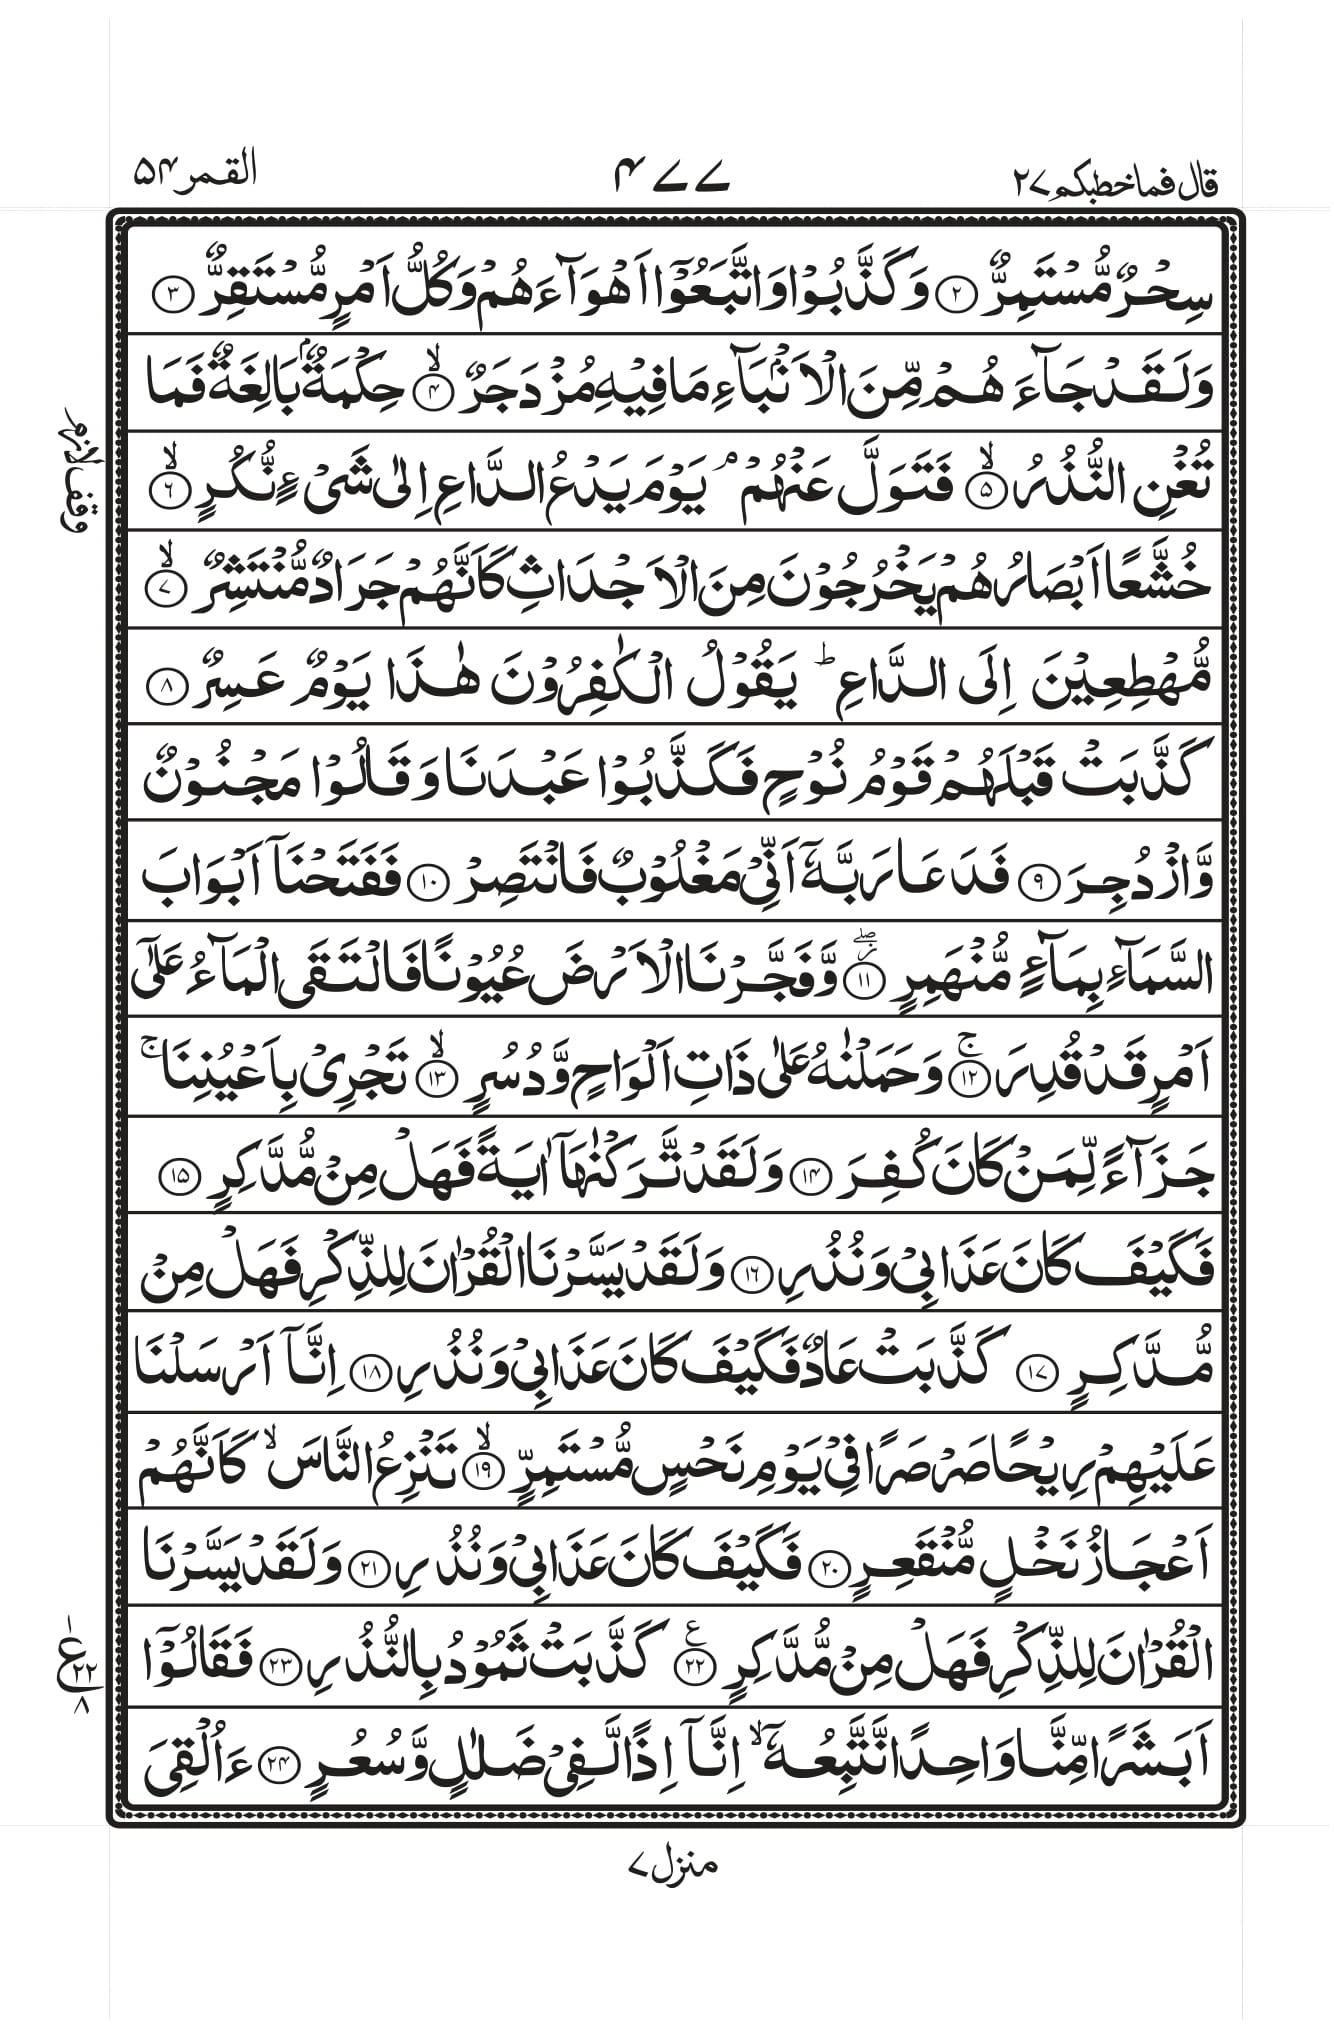 قال فما خطبكم ۲۷
۴۷۷
القمر ۵۴
سِحْرٌ مُّسْتَمِرٌّ ﴿۲﴾ وَكَذَّبُوْا وَاتَّبَعُوْۤا اَهْوَآءَهُمْ وَكُلُّ اَمْرٍ مُّسْتَقِرٌّ ﴿۳﴾
وَلَقَدْ جَآءَ هُمْ مِّنَ الْاَنْۢبَآءِ مَا فِيْهِ مُزْدَجَرٌ ۙ﴿۴﴾ حِكْمَةٌۢ بَالِغَةٌ فَمَا
تُغْنِ النُّذُرُ ۙ﴿۵﴾ فَتَوَلَّ عَنْهُمْ ۘ يَوْمَ يَدْعُ الدَّاعِ اِلٰى شَىْءٍ نُّكُرٍ ۙ﴿۶﴾
وقف لازم
خُشَّعًا اَبْصَارُهُمْ يَخْرُجُوْنَ مِنَ الْاَجْدَاثِ كَاَنَّهُمْ جَرَادٌ مُّنْتَشِرٌ ۙ﴿۷﴾
مُّهْطِعِيْنَ اِلَى الدَّاعِ ؕ يَقُوْلُ الْكٰفِرُوْنَ هٰذَا يَوْمٌ عَسِرٌ ﴿۸﴾
كَذَّبَتْ قَبْلَهُمْ قَوْمُ نُوْحٍ فَكَذَّبُوْا عَبْدَنَا وَقَالُوْا مَجْنُوْنٌ
وَّازْدُجِرَ ﴿۹﴾ فَدَعَا رَبَّهٗۤ اَنِّىْ مَغْلُوْبٌ فَانْتَصِرْ ﴿۱۰﴾ فَفَتَحْنَاۤ اَبْوَابَ
السَّمَآءِ بِمَآءٍ مُّنْهَمِرٍ ﴿۱۱﴾ وَّفَجَّرْنَا الْاَرْضَ عُيُوْنًا فَالْتَقَى الْمَآءُ عَلٰٓى
اَمْرٍ قَدْ قُدِرَ ۚ﴿۱۲﴾ وَحَمَلْنٰهُ عَلٰى ذَاتِ اَلْوَاحٍ وَّدُسُرٍ ۙ﴿۱۳﴾ تَجْرِىْ بِاَعْيُنِنَا ۚ
جَزَآءً لِّمَنْ كَانَ كُفِرَ ﴿۱۴﴾ وَلَقَدْ تَّرَكْنٰهَاۤ اٰيَةً فَهَلْ مِنْ مُّدَّكِرٍ ﴿۱۵﴾
فَكَيْفَ كَانَ عَذَابِىْ وَنُذُرِ ﴿۱۶﴾ وَلَقَدْ يَسَّرْنَا الْقُرْاٰنَ لِلذِّكْرِ فَهَلْ مِنْ
مُّدَّكِرٍ ﴿۱۷﴾ كَذَّبَتْ عَادٌ فَكَيْفَ كَانَ عَذَابِىْ وَنُذُرِ ﴿۱۸﴾ اِنَّاۤ اَرْسَلْنَا
عَلَيْهِمْ رِيْحًا صَرْصَرًا فِىْ يَوْمِ نَحْسٍ مُّسْتَمِرٍّ ۙ﴿۱۹﴾ تَنْزِعُ النَّاسَ ۙ كَاَنَّهُمْ
اَعْجَازُ نَخْلٍ مُّنْقَعِرٍ ﴿۲۰﴾ فَكَيْفَ كَانَ عَذَابِىْ وَنُذُرِ ﴿۲۱﴾ وَلَقَدْ يَسَّرْنَا
الْقُرْاٰنَ لِلذِّكْرِ فَهَلْ مِنْ مُّدَّكِرٍ ﴿۲۲﴾ع كَذَّبَتْ ثَمُوْدُ بِالنُّذُرِ ﴿۲۳﴾ فَقَالُوْۤا
ع ۱ ۲۲ ۸
اَبَشَرًا مِّنَّا وَاحِدًا نَّتَّبِعُهٗۤ ۙ اِنَّاۤ اِذًا لَّفِىْ ضَلٰلٍ وَّسُعُرٍ ﴿۲۴﴾ ءَاُلْقِىَ
منزل ۷